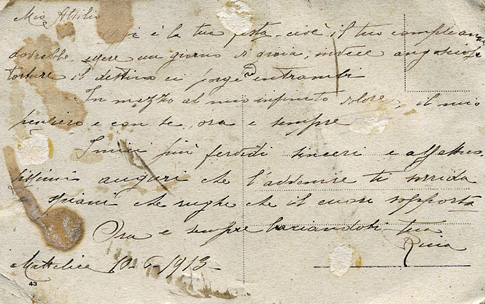 Mio Attilio
è la tua festa, cioè il tuo compleanno
dovrebbe essere un giorno di gioia, invece angosciose
torture il destino ci porge ad entrambi
In mezzo al mio infinito dolore, il mio
pensiero è con te, ora e sempre
I miei più fervidi sinceri e affettuo
sissimi auguri che l'avvenire ti sorrida
che il cuore sopporta
Ora e sempre baciandoti tua
Matelica 10-6-1913-
43